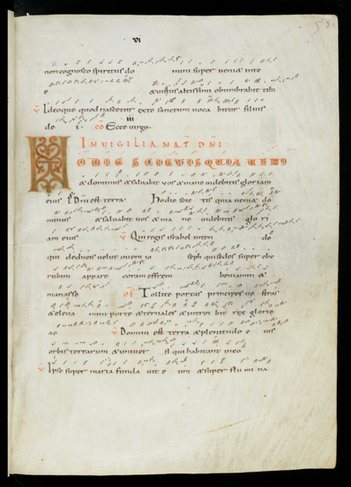 vi
non cognosco spiritus do mini super veniæ in te
& virtus altissimi obumbrabit tibi
V Ideoque quod nascetur ex te sanctum voca bitur filius
iii
do i. co Ecce virgo.
IN VIGILIA NAT DNI
HODIE SCIETIS QUIA VENI
& dominus & salvabit vos & mane videbitis gloriam
eius Ps Dni est terra. Hodie scie tis quia veniæ do
minus & salvabit nos & ma ne videbitis glo ri
am eius V Qui regis israhel inten do
qui deducis velut ovem io seph qui sedes super che
rubim appare coram effrem beniamin &
manasse of Tollite portas principes ve stras
& eleva mini portæ æternales & intro ibit rex gloriæ
V Domini est terra & plenitudo e ius
orbis terrarum & univer si qui habitant in eo
V Ipse super maria funda vit e um & super flu mi na